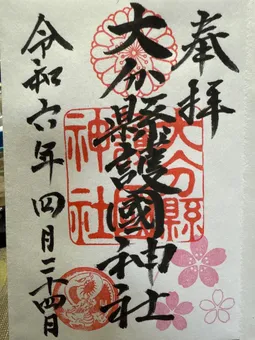 奉拝
大分縣護國神社
大分縣
神社
令和六年四月二十四日